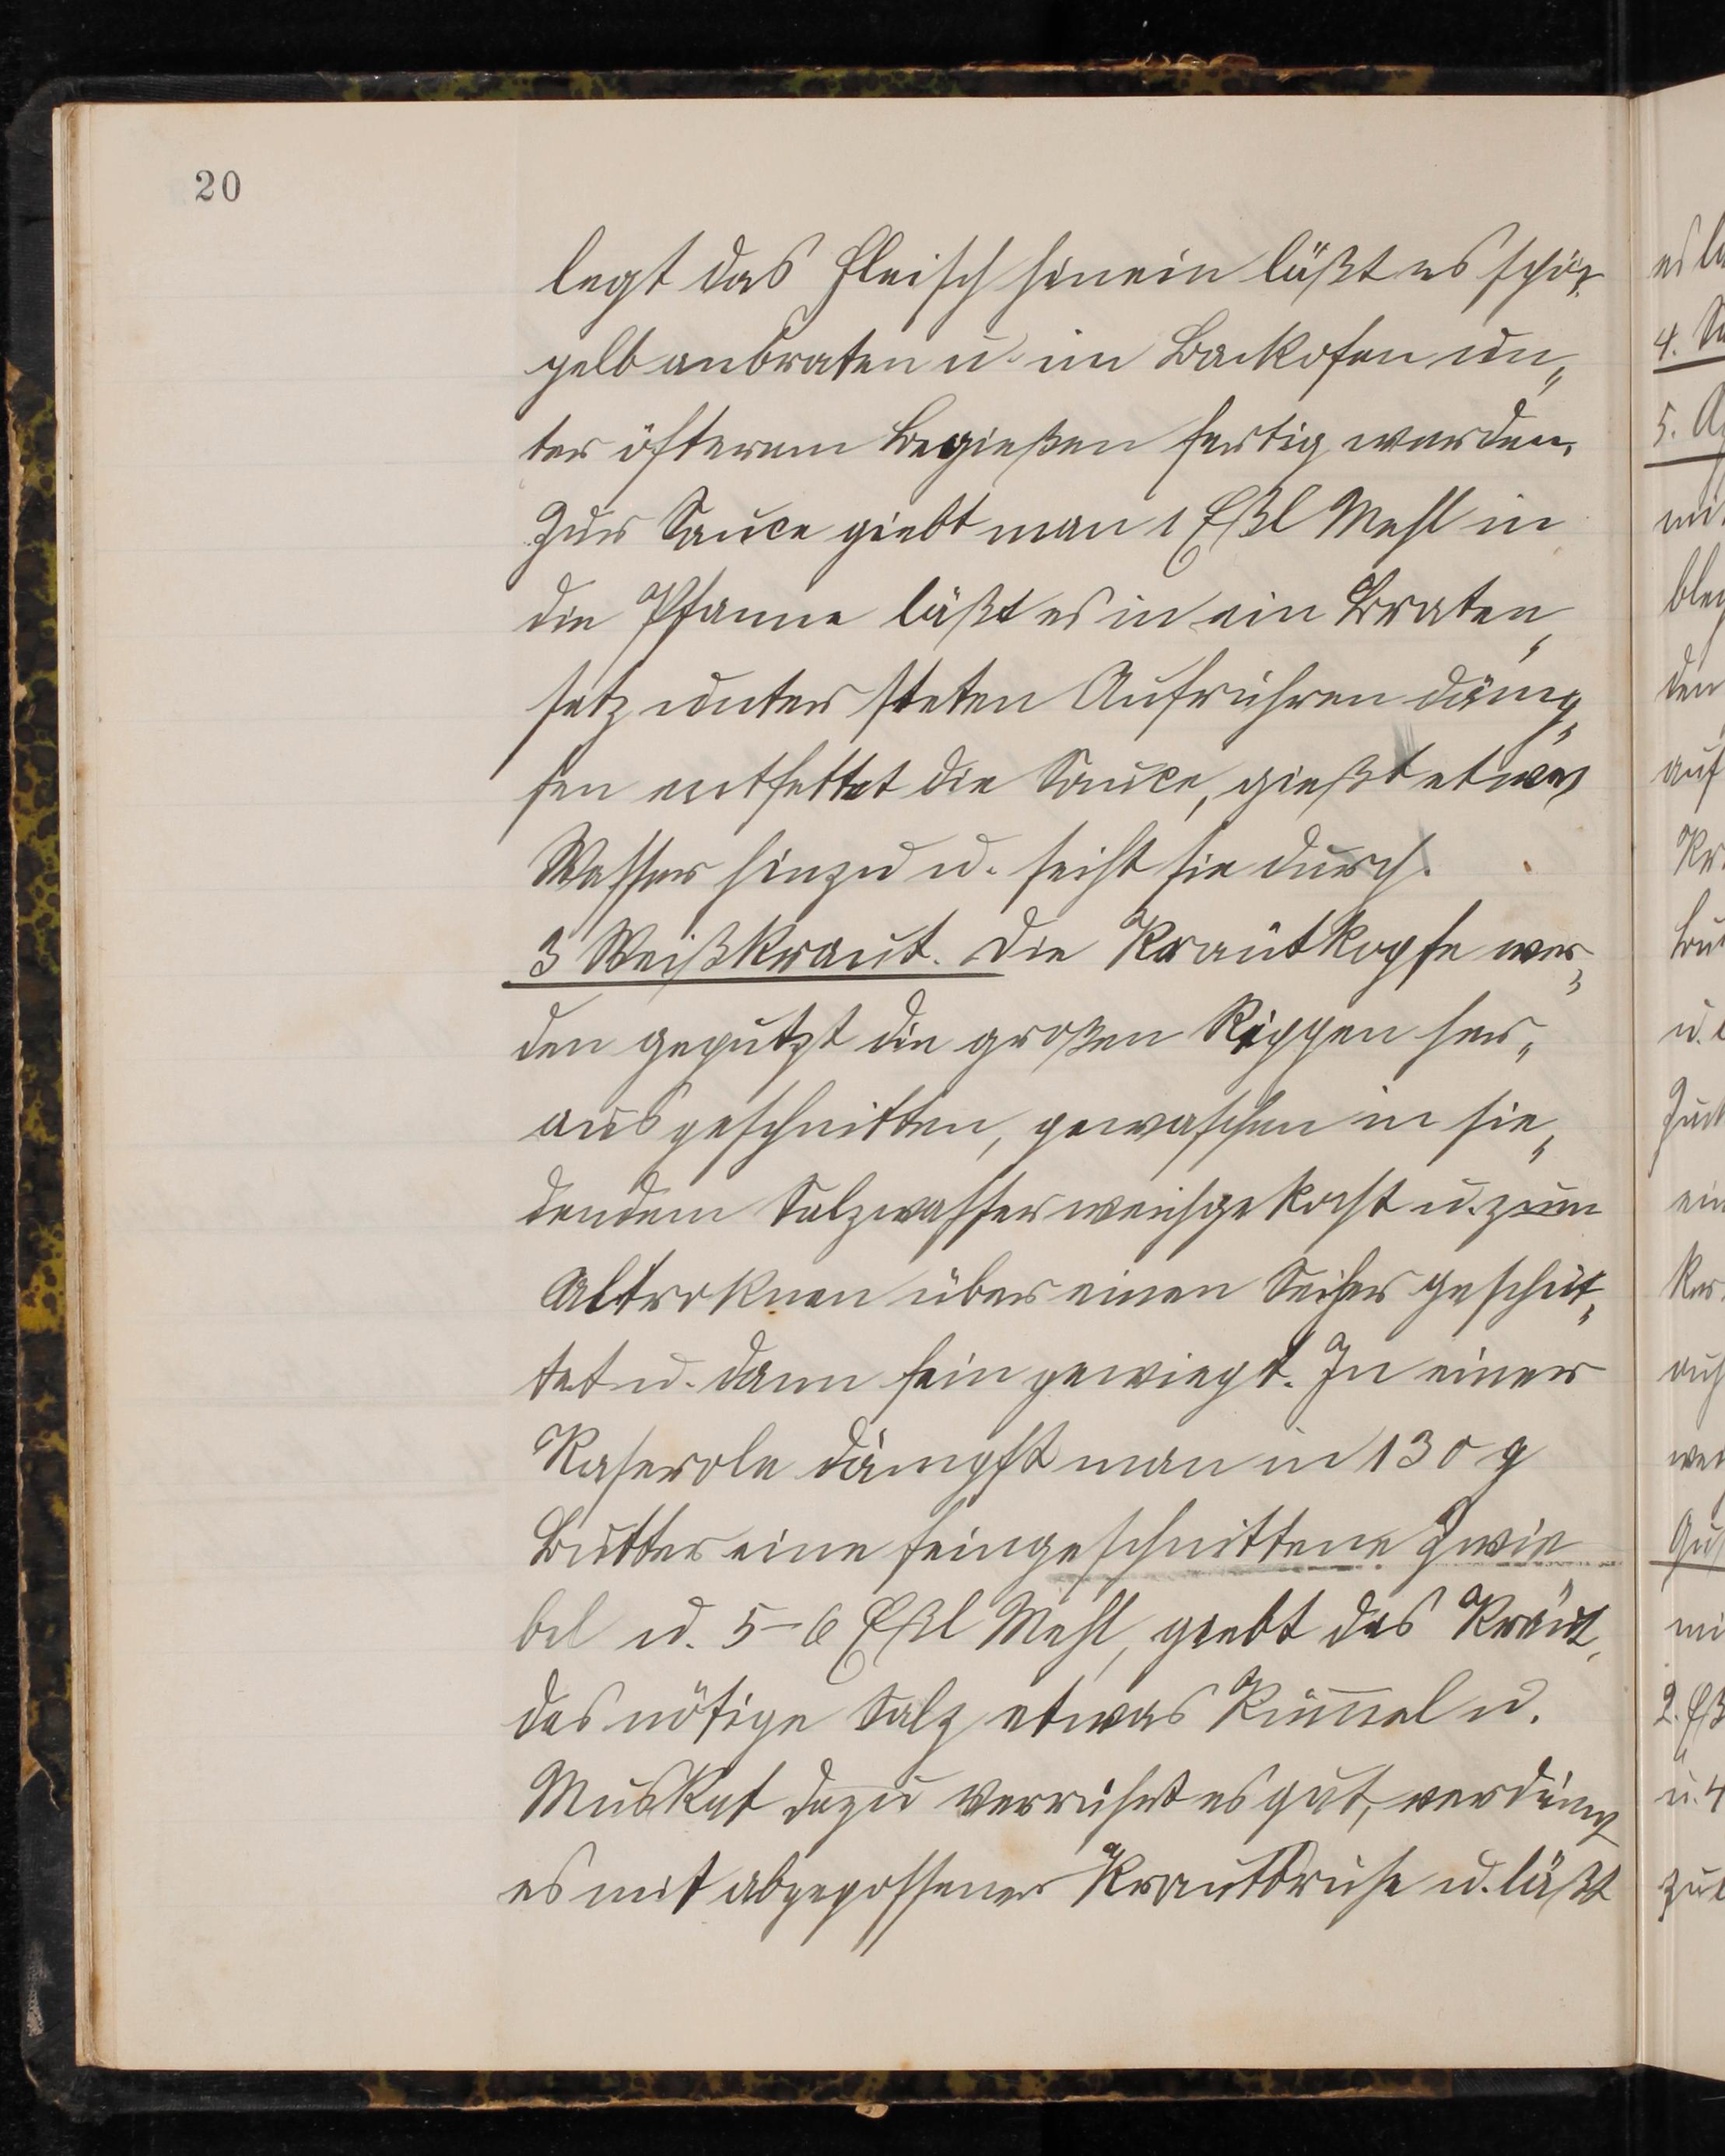 20
legt das Fleisch hinein läßt es schön
gelb anbraten u. im Backofen un„
ter öfterem Begießen fertig werden.
Zur Sauce giebt man 1 Eßl Mehl in
die Pfanne läßt es in ein Braten„
satz unter steten Aufrühren däm„
fen entfettet die Sauce, gießt etwas
Wasser hinzu u. seiht sie durch.
3 Weißkraut. Die Krautkopfe wer„
den geputzt die großen Rippen her„
ausgeschnitten, gewaschen in sie„
dendem Salzwasser weichgekocht u. zum
Abtroknen über einen Seiher geschüt„
tet u. dann fein gewiegt. In einer
Kaserole dämpft man in 130 g
Butter eine feingeschnittene Zwie
bel u. 5-6 Eßl Mehl, giebt das Kraut,
das nötige Salz etwas Kümmel u.
Muskat dazu verrührt es gut, verdünnt
es mit abgegossener Krautbrühe u. läßt